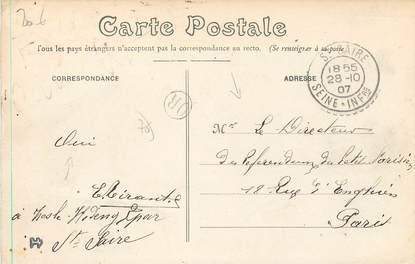 Carte Postale
Tous les pays étrangers n'acceptent pas la correspondance au recto. (Se renseigner à la poste)
CORRESPONDANCE
ADRESSE
St SAIRE
18 55
28 - 10
07
SEINE - INFRE
Oui
Mr Le Directeur
du Referendum du Petit Parisien
18 Rue d'Enghien
Paris
à
St Saire